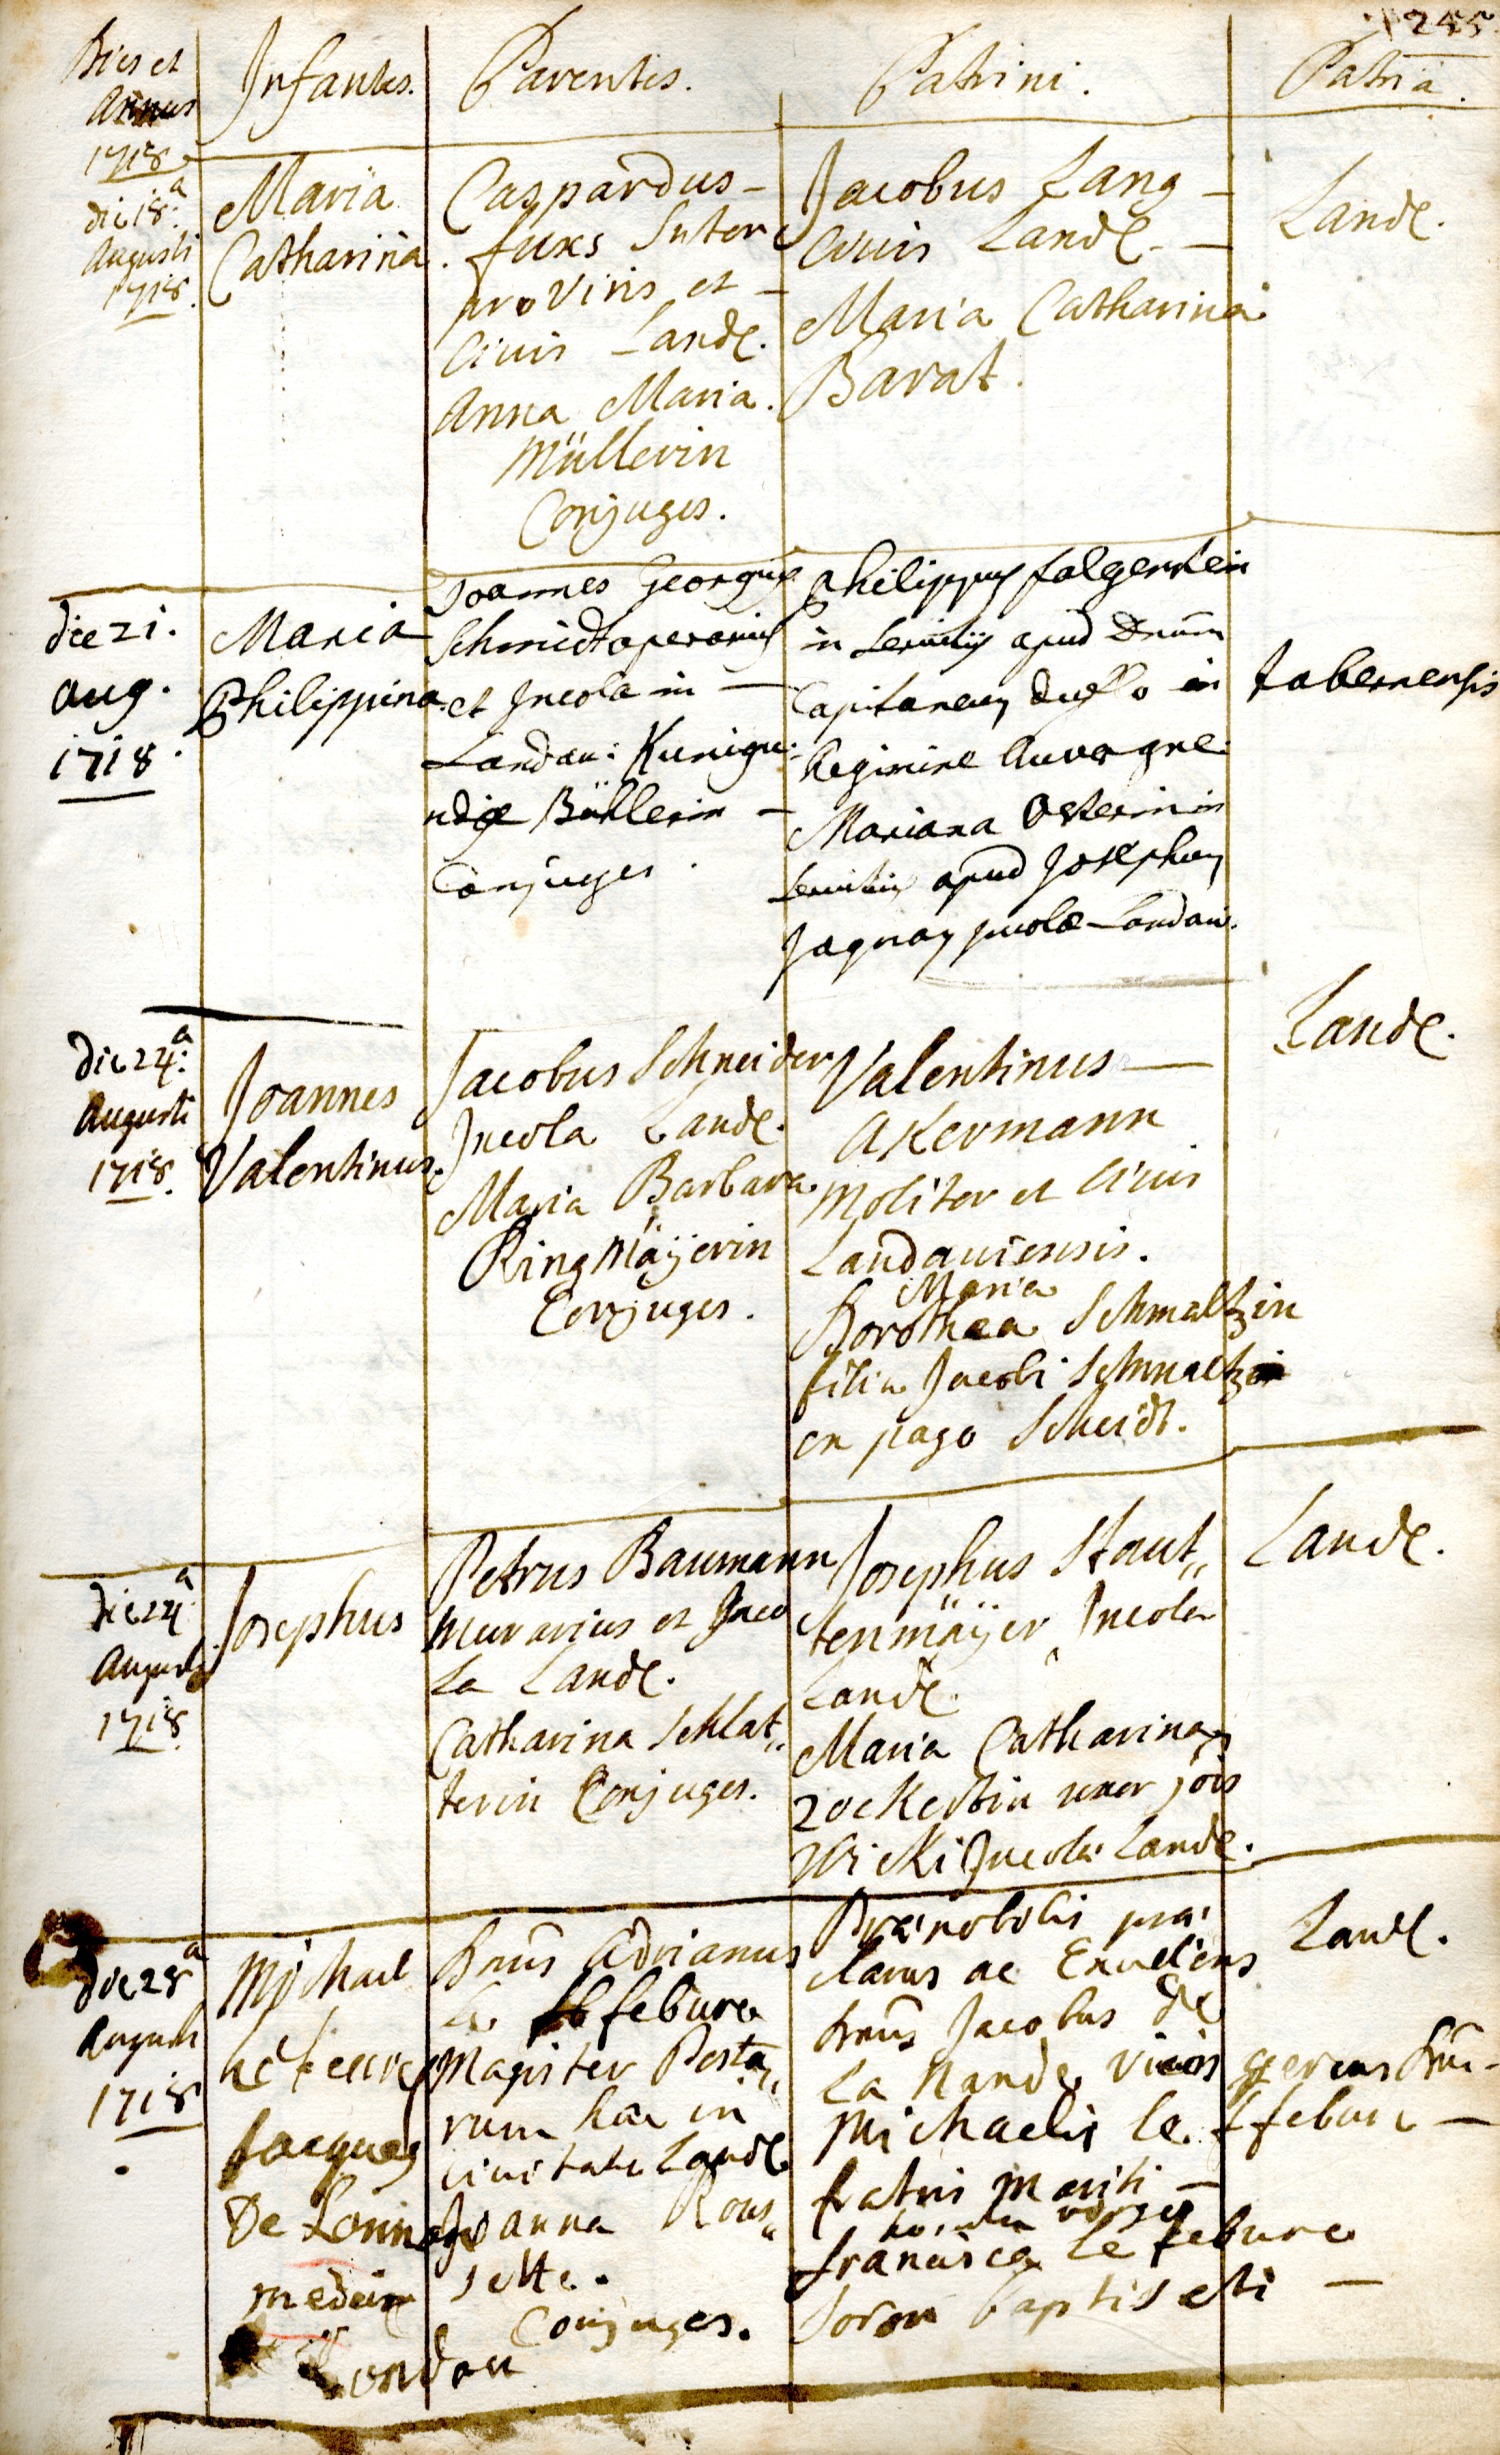 245
Dies et
Annus
1718
Infantes.
Parentes.
Patrini.
Patria.
die 18.a
Augusti
1718.
Maria
Catharina.
Caspardus -
fuxs Sutor
pro Viris et -
Civis Landae.
Anna Maria.
Müllerin
Conjuges.
Jacobus Lang -
Civis Landae. -
Maria Catharina
Barat.
Landae.
die 21.
aug.
1718.
Maria
Philippina.
Joannes Georgius
Schmidt operarius
et Incola in -
Landau: Kunigu-
ndae Büllerin -
Conjuges.
Philippus falgenstein
in servitiis apud Dnum
Capitaneum in
Regimine Auvergne.
Mariana in
servitiis apud Josephum
incolae Landau.
tabernensis
die 24.a
Augusti
1718.
Joannes
Valentinus.
Jacobus Schneider
Incola Landae.
Maria Barbara
Ringmäÿerin
Conjuges.
Valentinus -
Akermann
Molitor et Civis
Landaviensis.
Maria
Dorothea Schmaltzin
filia Jacobi Schmaltz
en pago Scheidt.
Landae.
die 24a
Augusti
1718
Josephus
Petrus Baumann
Murarius et Inco
la Landae.
Catharina Schlat„
terin Conjuges.
Josephus Staut„
tenmäÿer Incola
Landae.
Maria Catharina
Zockerbin uxor jois
Wicki Incolae Landae.
Landae.
die 28a
Augusti
1718
Michael
Jacques
De Lonn
medecin
Londau
Dnus Adrianus
Le febure
Magister Posta„
rum hac in
civitate Landae
Joanna Rous„
sette.
Conjuges.
Praenobilis prae
clarus ac Excellens
Dnus Jacobus de
La Nande vices gerens Dni -
Michaelis le ffebure -
fratris Mariti -
francisca le febure
Soror baptisati -
Landae.